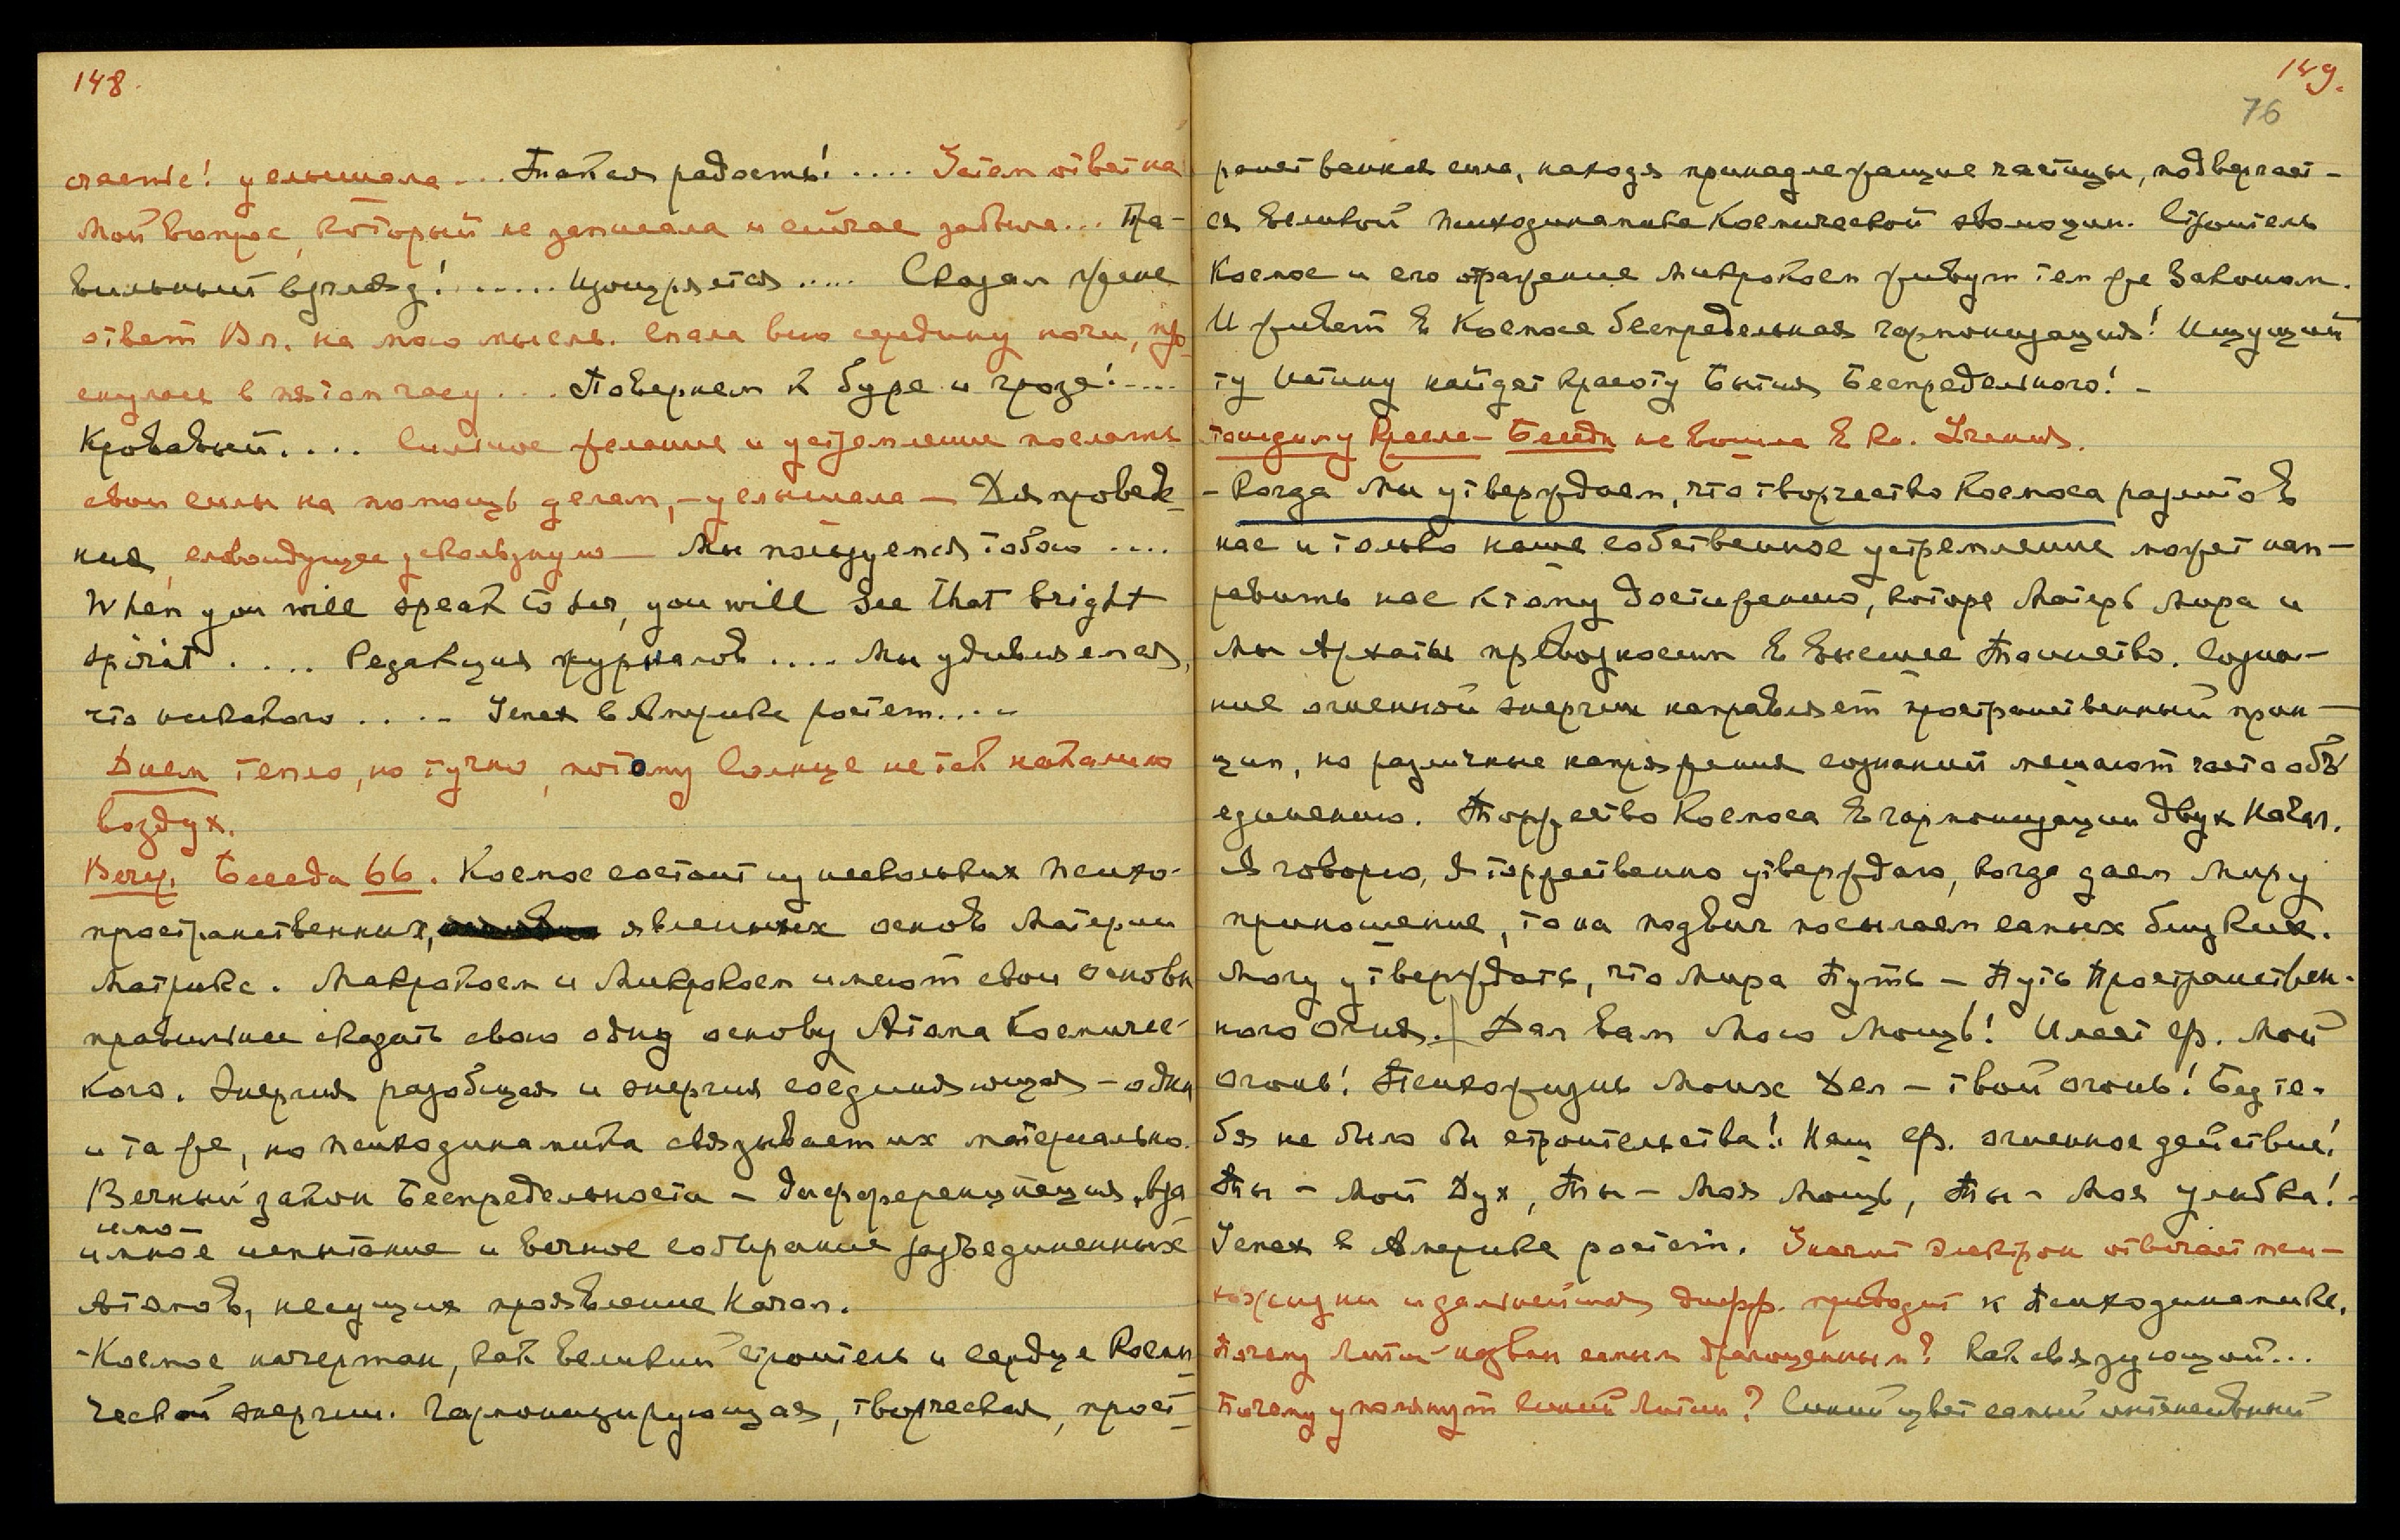 148.
счастье! услышала... Такая радость!.... Затем ответ на
мой вопрос, который не записала и сейчас забыла... Пра-
вильный взгляд!...... Изощряется..... Сказал
ответ Вл. на мою мысль. спала всю середину ночи, про-
снулась в пятом часу... Повернем к буре и грозе!....
Кровавый.... Сильное желание и устремление послать
свои силы на помощь делам, – услышала – Для проведе-
ния, следующее ускользнуло – Мы пользуемся тобою....
When you will speak to her, you will see that bright
spirit..... Редакция журналов.... Мы удивляемся,
что никакого.... Успех в Америке растет....
Днем тепло, но тучно, потому Солнце не так накалило
воздух.
Веч. Беседа 66. Космос состоит из нескольких психо-
пространственных, явленных основ Материи
Матрикс. Макрокосм и Микрокосм имеют свои основы
правильнее сказать свою одну основу Атома Космичес-
кого. Энергия разобщая и энергия соединяющая – одна
и та же, но психодинамика связывает их материально.
Вечный закон Беспредельности – дифференциация, вза
имо-
имное испытание и вечное собирание разъединенных
Атомов, несущих проявление Начал.
- Космос начертан, как великий строитель и сердце Косми-
ческой энергии. Гармонизирующая, творческая, прост-
149.
76
ранственная сила, находя принадлежащие частицы, подвергает-
ся великой психодинамике Космической эволюции. Строитель
Космос и его отражение микрокосм живут тем же Законом.
И живет в Космосе беспредельная гармонизация! Ищущий
ту Истину найдет красоту Бытия Беспредельного! –
Беседы не вошла в кн. Учения.
- Когда Мы утверждаем, что творчество Космоса разлито в
нас и только наше собственное устремление может нап-
равить нас к тому достижению, которое Матерь Мира и
мы Архаты превозносим в высшее Таинство. Созна-
ние огненной энергии направляет пространственный прин-
цип, но различные напряжения сознаний мешают часто объ
единению. Торжество Космоса в гармонизации двух Начал.
Я говорю, Я торжественно утверждаю, когда даем Миру
приношение, то на подвиг посылаем самых близких.
Могу утверждать, что Мира Путь – Путь Пространствен-
ного Огня. Дал вам Мою Мощь! Имеет Мой
огонь! Психожизнь Моих Дел – твой огонь! Без те-
бя не было бы строительства! Наш огненное действие!
Ты – Мой Дух, Ты – Моя Мощь, Ты – Моя улыбка! -
Успех в Америке растет. Значит электрон отвечает пси-
хожизни и дальнейшая дифф. приводит к Психодинамике.
Почему Литий назван самым драгоценным? Как связующий...
Почему упомянут синий Литий? Синий цвет самый интенсивный